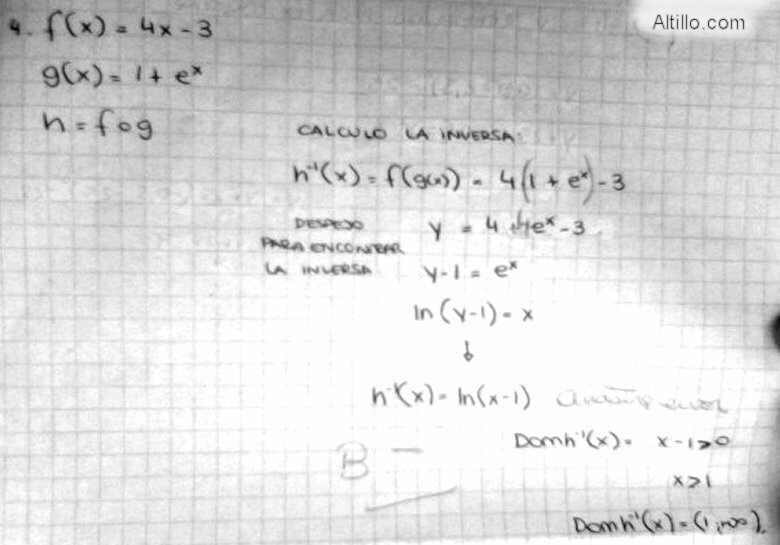 Altillo.com
4. f(x) = 4x - 3
g(x) = 1 + eˣ
h = f o g
CALCULO LA INVERSA:
h⁻¹(x) = f(g(x)) = 4(1 + eˣ) - 3
DESPEJO
PARA ENCONTRAR
LA INVERSA
y = 4 + 4eˣ - 3
y - 1 = eˣ
ln(y - 1) = x
↓
h⁻¹(x) = ln(x - 1)
Dom h⁻¹(x) = x - 1 > 0
x > 1
Dom h⁻¹(x) = (1, +∞)
B -